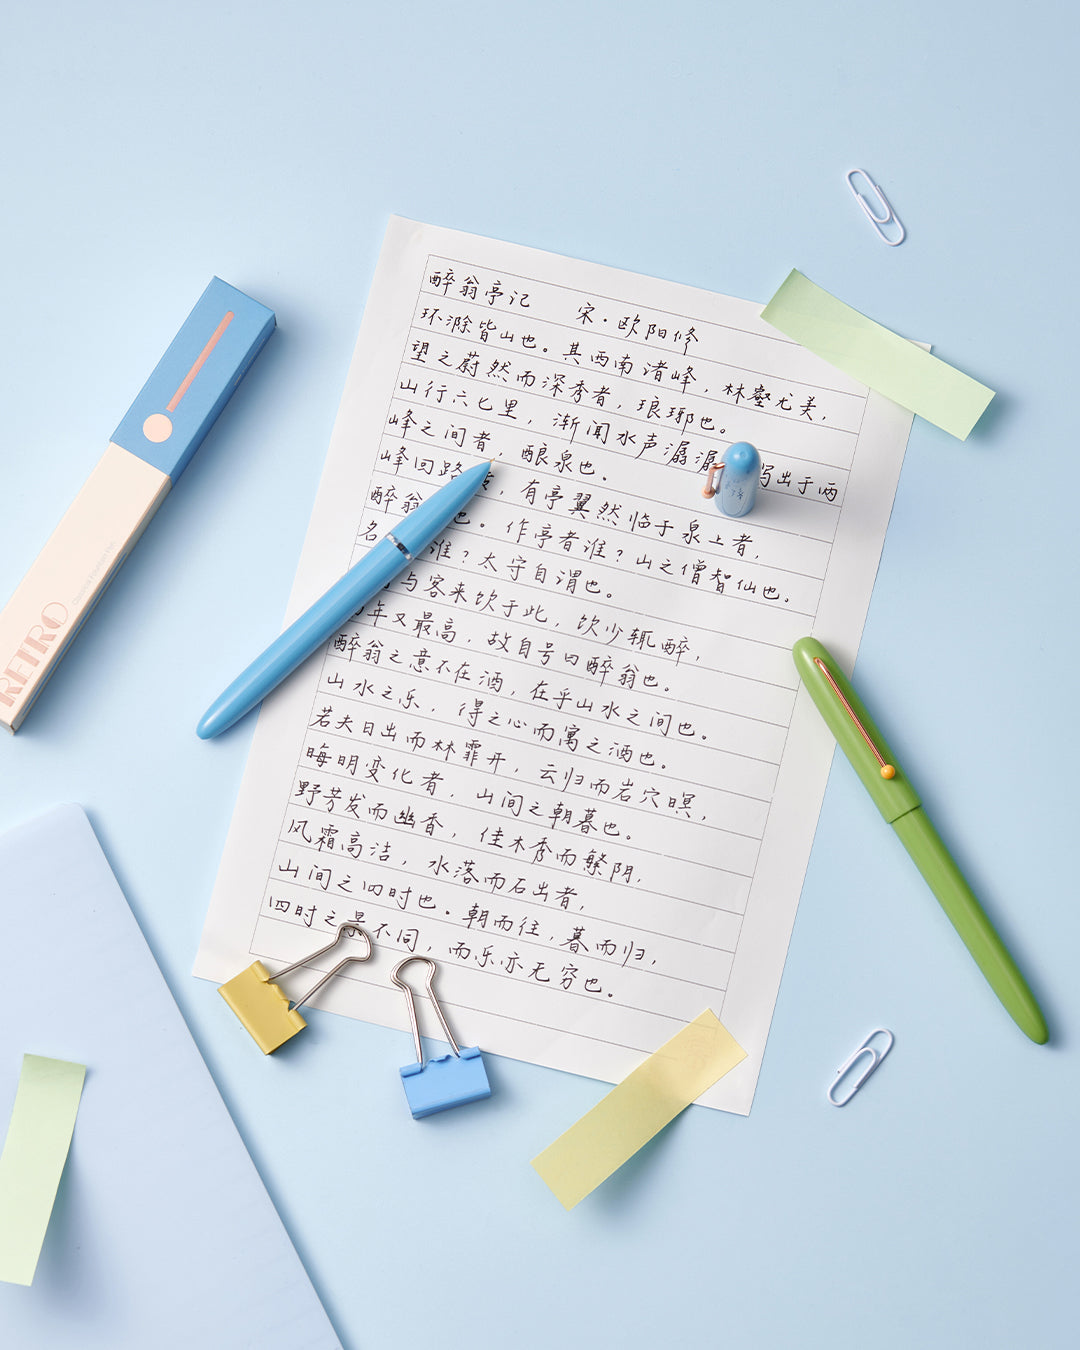 醉翁亭记 宋·欧阳修
环滁皆山也。其西南诸峰，林壑尤美，
望之蔚然而深秀者，琅琊也。
山行六七里，渐闻水声潺潺 写出于两
峰之间者，酿泉也。
峰回路 ，有亭翼然临于泉上者，
醉翁 也。作亭者谁？山之僧智仙也。
名 谁？太守自谓也。
与客来饮于此，饮少辄醉，
年又最高，故自号曰醉翁也。
醉翁之意不在酒，在乎山水之间也。
山水之乐，得之心而寓之酒也。
若夫日出而林霏开，云归而岩穴暝，
晦明变化者，山间之朝暮也。
野芳发而幽香，佳木秀而繁阴，
风霜高洁，水落而石出者，
山间之四时也。朝而往，暮而归，
四时之景不同，而乐亦无穷也。
RETRO
Classical Fountain Pen